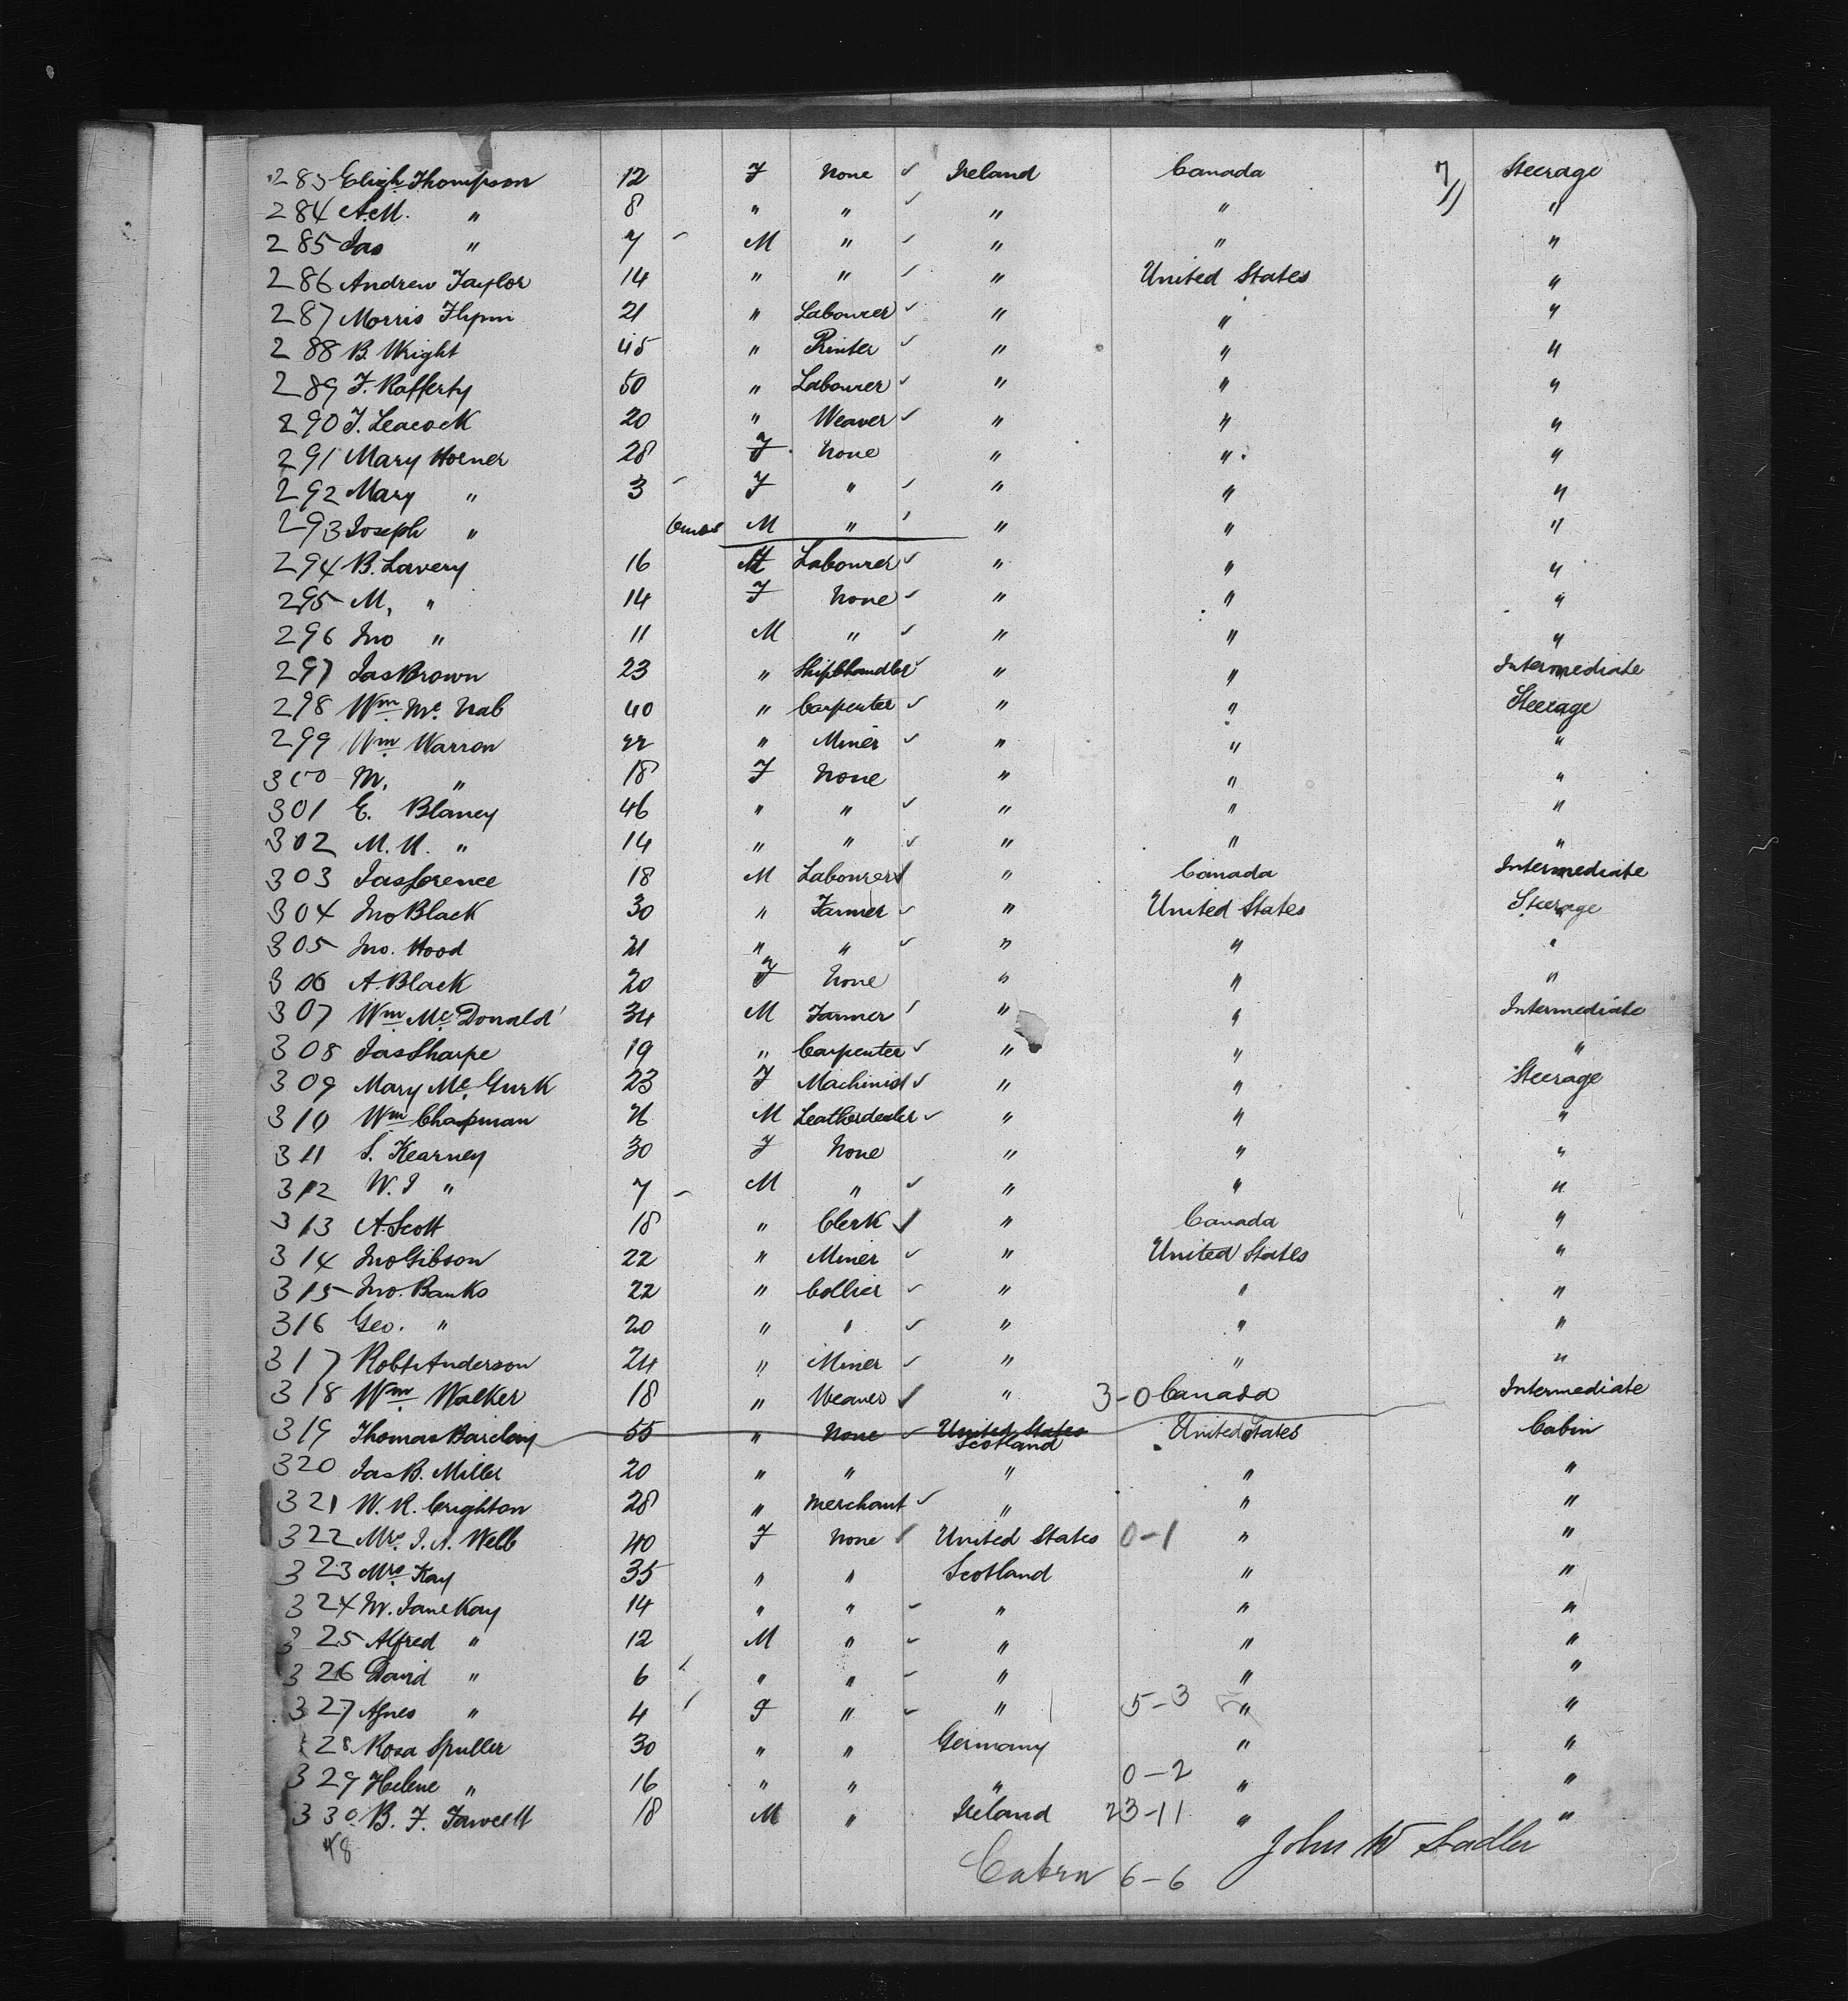 283 Elizh Thompson 12 F None ✓ Ireland Canada 7 Steerage
284 A.M. " 8 " " ✓ " " "
285 Jas " 7 - M " ✓ " " "
286 Andrew Taylor 14 " " ✓ " United States "
287 Morris Flynn 21 " Labourer ✓ " " "
288 B. Wright 45 " Printer ✓ " " "
289 F. Rafferty 50 " Labourer ✓ " " "
290 J. Leacock 20 " Weaver ✓ " " "
291 Mary Horner 28 F None " " "
292 Mary " 3 - F " ✓ " " "
293 Joseph " 6mos M " ' " " "
294 B. Lavery 16 M Labourer ✓ " " "
295 M, " 14 F None ✓ " " "
296 Jno " 11 M " ✓ " " "
297 Jas Brown 23 " Shipchandler ✓ " " Intermediate
298 Wm Mc Nab 40 " Carpenter ✓ " " Steerage
299 Wm Warron 22 " Miner ✓ " " "
300 M, " 18 F None " " "
301 E. Blaney 46 " " ✓ " " "
302 M. M. " 14 " " ✓ " " "
303 Jas Lorence 18 M Labourer ✓ " Canada Intermediate
304 Jno Black 30 " Farmer ✓ " United States Steerage
305 Jno. Hood 21 " " ✓ " " "
306 A. Black 20 F None " " "
307 Wm Mc Donald 34 M Farmer ✓ " " Intermediate
308 Jas Sharpe 19 " Carpenter ✓ " " "
309 Mary Mc Gurk 23 F Machinist ✓ " " Steerage
310 Wm Chapman 26 M Leatherdealer ✓ " " "
311 S. Kearney 30 F None " " "
312 W. J " 7 - M " ✓ " " "
313 A. Scott 18 " Clerk ✓ " Canada "
314 Jno Gibson 22 " Miner ✓ " United States "
315 Jno. Banks 22 " Collier ✓ " " "
316 Geo. " 20 " " ✓ " " "
317 Robt Anderson 24 " Miner ✓ " " "
318 Wm Walker 18 " Weaver ✓ " 3-0 Canada Intermediate
319 Thomas Barclay 55 " None ✓ United States United States Cabin
320 Jas B. Miller 20 " " Scotland " " "
321 W. R. Crighton 28 " Merchant ✓ " " "
322 Mrs. J. A. Webb 40 F None ✓ United States 0-1 " "
323 Mrs Kay 35 " " Scotland " "
324 M. Jane Kay 14 " " ✓ " " "
325 Alfred " 12 M " ✓ " " "
326 David " 6 ✓ " " ✓ " " "
327 Agnes " 4 ✓ F " ✓ " 5-3 " "
328 Rosa Spuller 30 " " Germany " "
329 Helene " 16 " " " 0-2 " "
330 B. F. Fawcett 18 M " Ireland 23-11 " "
48 John W Sadler
Cabin 6-6